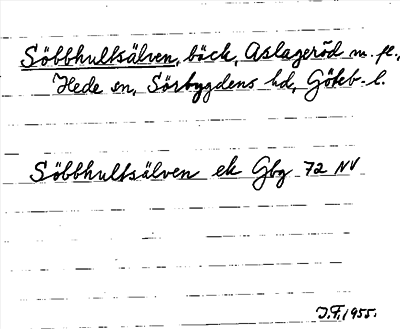 Söbbhultsälven, bäck, Aslageröd m. fl.,
Hede sn, Sörbygdens hd, Göteb. l.
Söbbhultsälven ek Gbg 72 NV
J.F. 1955.